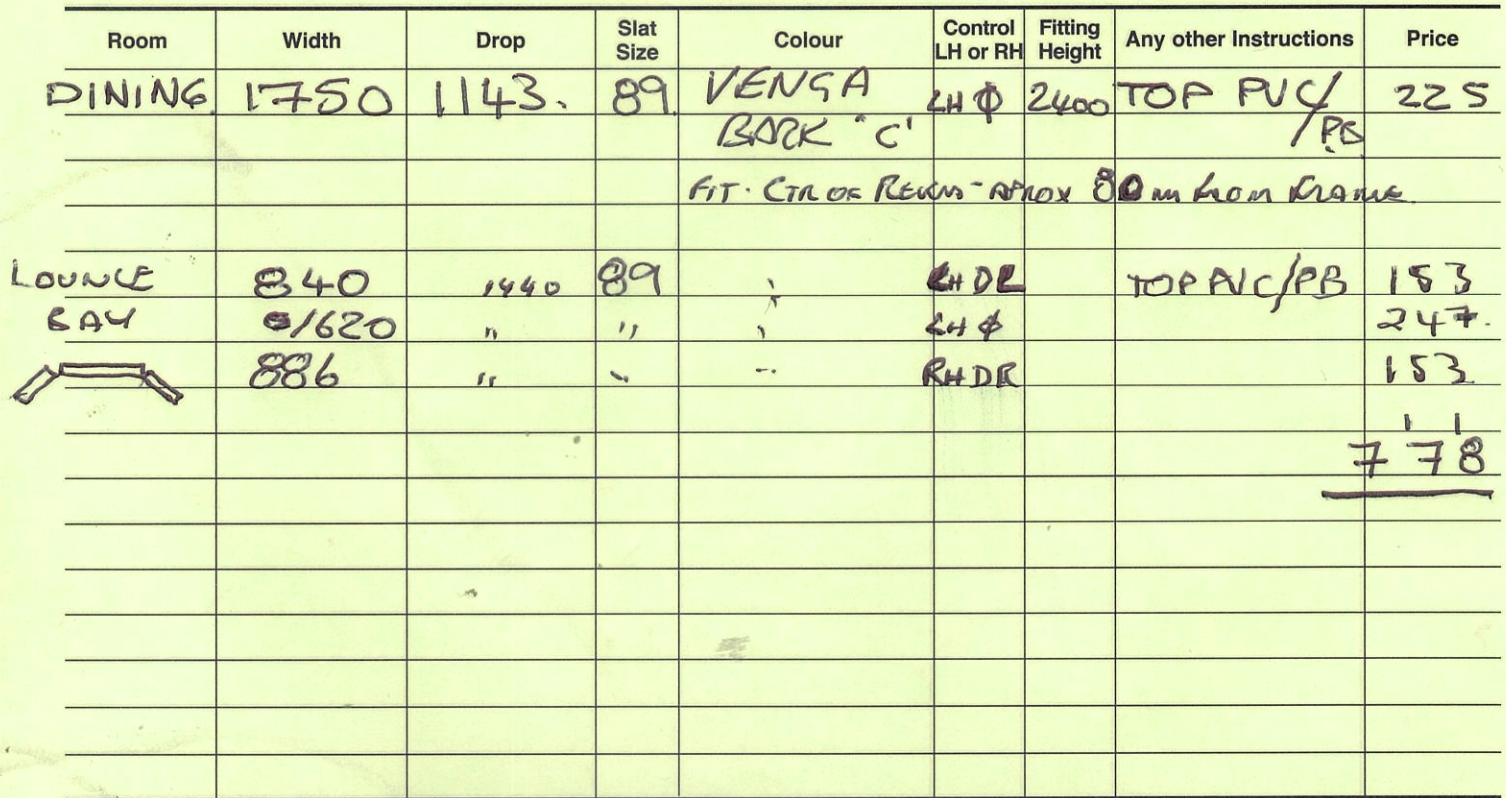 Room Width Drop Slat Size Colour Control LH or RH Fitting Height Any other Instructions Price
DINING 1750 1143. 89 VENGA LH 2400 TOP PVC/ 225
BARK "C" PB
FIT. CTR OF APROX 80 m from FRAME.
LOUNGE 840 1440 89 " RHDR TOP PVC/PB 153
BAY 1620 " " " LH 247.
886 " " " RHDR 153
1 1
778